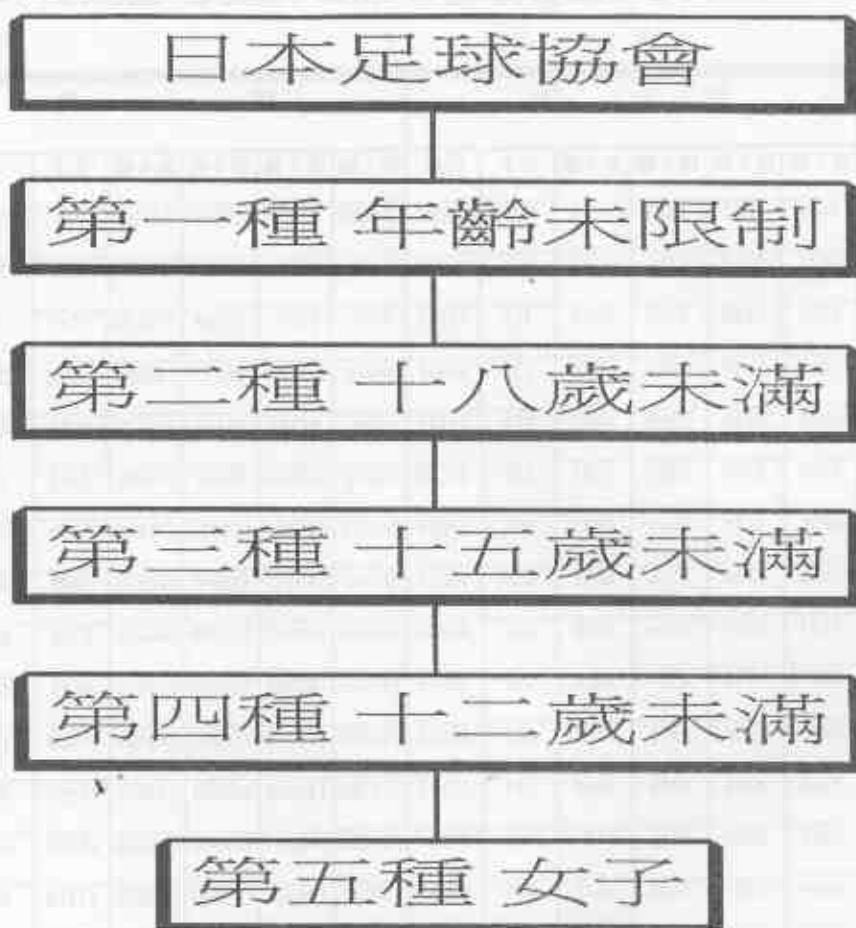 日本足球協會
第一種 年齡未限制
第二種 十八歲未滿
第三種 十五歲未滿
第四種 十二歲未滿
第五種 女子